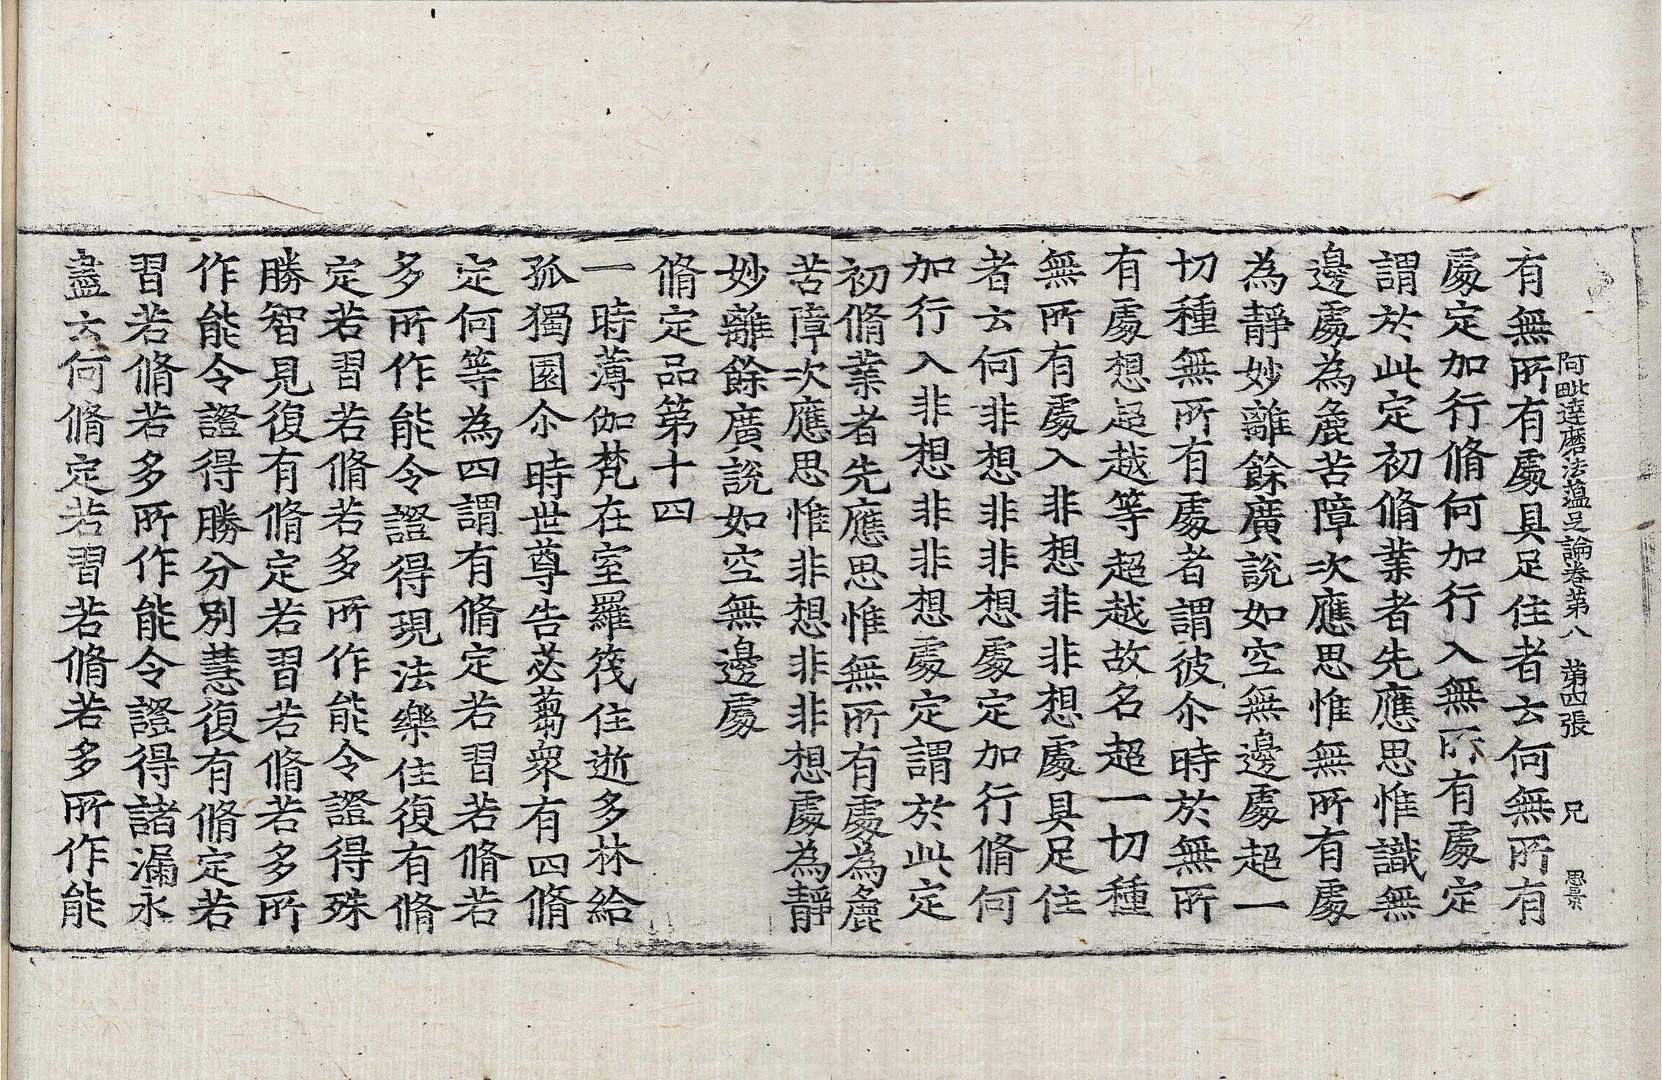 阿毗達磨法蘊足論卷第八 苐四張 兄 思景
有無所有處具足住者云何無所有
處定加行脩何加行入無所有處定
謂於此定初脩業者先應思惟識無
邊處為麁苦障次應思惟無所有處
為靜妙離餘廣說如空無邊處超一
切種無所有處者謂彼尒時於無所
有處想超越等超越故名超一切種
無所有處入非想非非想處具足住
者云何非想非非想處定加行脩何
加行入非想非非想處定謂於此定
初脩業者先應思惟無所有處為麁
苦障次應思惟非想非非想處為靜
妙離餘廣說如空無邊處
脩定品第十四
一時薄伽梵在室羅筏住逝多林給
孤獨園尒時世尊告苾蒭衆有四脩
定何等為四謂有脩定若習若脩若
多所作能令證得現法樂住復有脩
定若習若脩若多所作能令證得殊
勝智見復有脩定若習若脩若多所
作能令證得勝分別慧復有脩定若
習若脩若多所作能令證得諸漏永
盡云何脩定若習若脩若多所作能